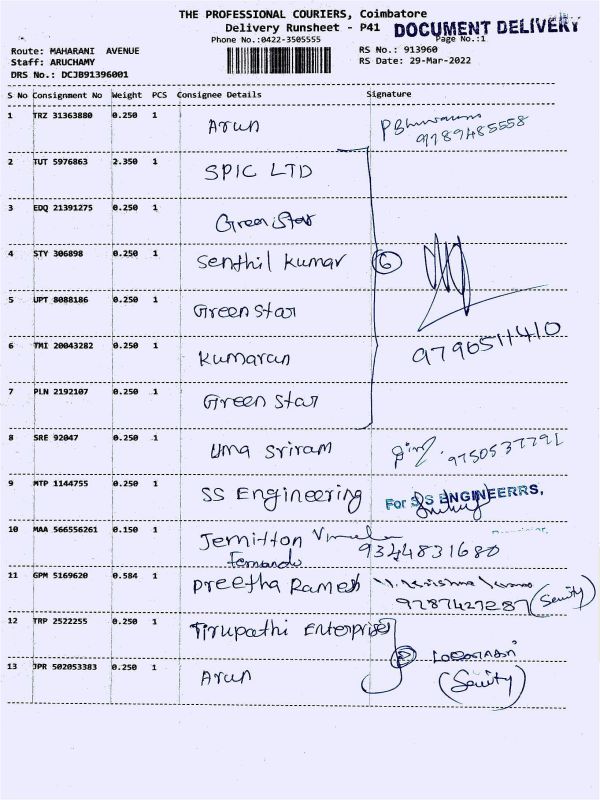 THE PROFESSIONAL COURIERS, Coimbatore
Delivery Runsheet - P41 DOCUMENT DELIVERY
Phone No.:0422-3505555 Page No.:1
Route: MAHARANI AVENUE RS No.: 913960
Staff: ARUCHAMY RS Date: 29-Mar-2022
DRS No.: DCJB91396001
S No Consignment No Weight PCS Consignee Details Signature
1 TRZ 31363880 0.250 1 Arun
9789485558
2 TUT 5976863 2.350 1 SPIC LTD
3 EDQ 21391275 0.250 1 Green Star
4 STY 306898 0.250 1 Senthil Kumar 6
5 UPT 8088186 0.250 1 Green Star
6 TMI 20043282 0.250 1 Kumaran 9790511410
7 PLN 2192107 0.250 1 Green Star
8 SRE 92047 0.250 1 Uma Sriram 9750537791
9 MTP 1144755 0.250 1 SS Engineering For S S ENGINEERRS,
10 MAA 566556261 0.150 1 Jemitton Vimala 9344831680
Fernando
11 GPM 5169620 0.584 1 Preetha Ramesh
9787427287 (Seuity)
12 TRP 2522255 0.250 1 Tirupathi Enterprises
13 JPR 502053383 0.250 1 Arun (Seuity)